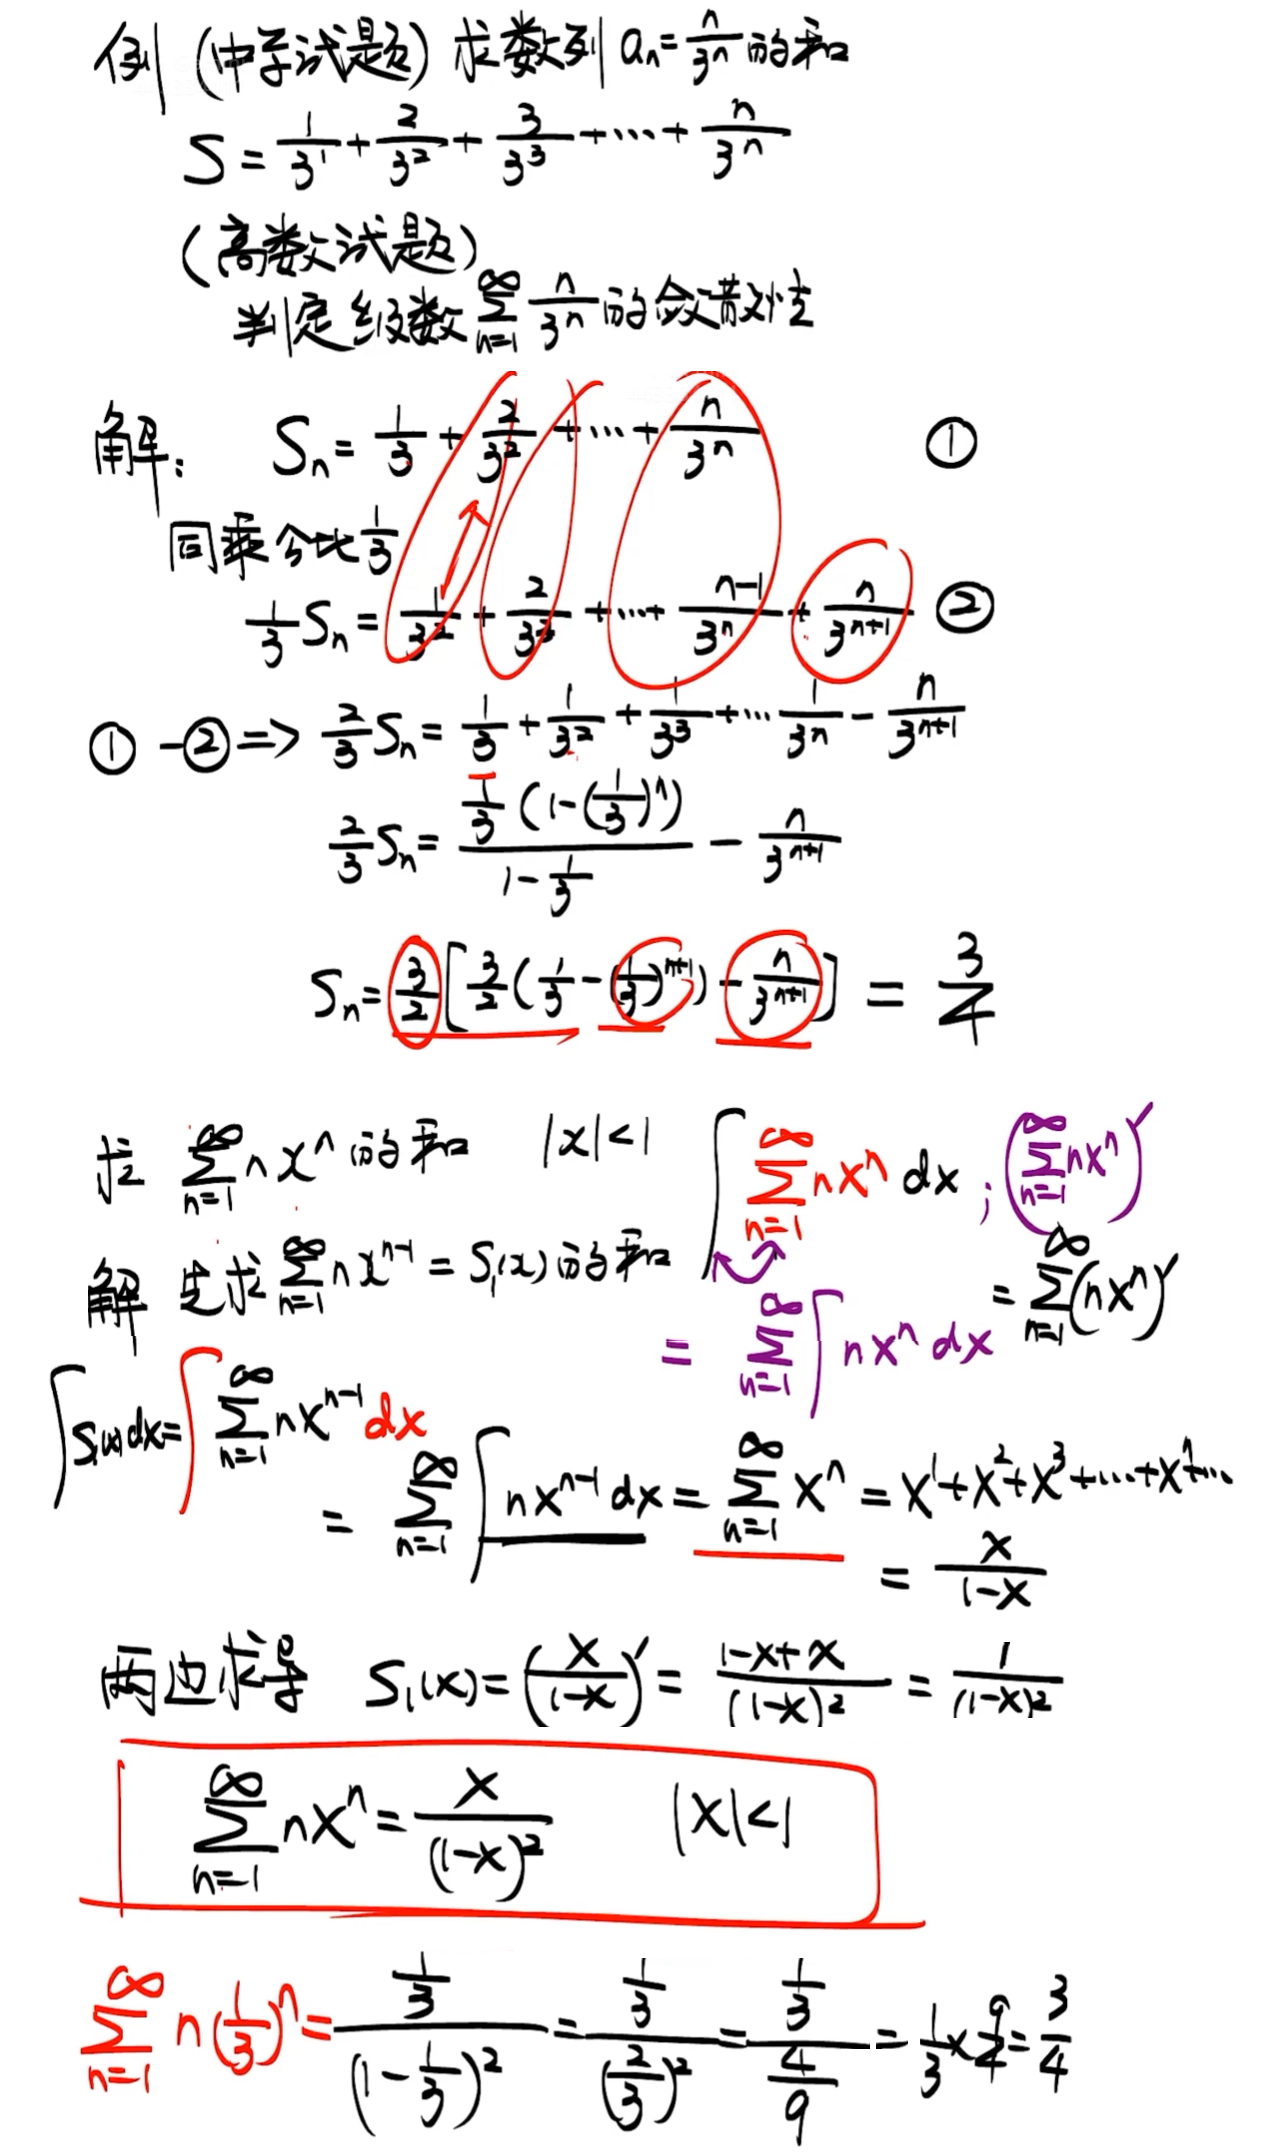 例 (中学试题) 求数列 aₙ = n/3ⁿ 的和
S = 1/3¹ + 2/3² + 3/3³ + ⋯ + n/3ⁿ
(高数试题)
判定级数 ∑_{n=1}^{∞} n/3ⁿ 的敛散性
解: Sₙ = 1/3 + 2/3² + ⋯ + n/3ⁿ ①
同乘公比 1/3
1/3 Sₙ = 1/3² + 2/3³ + ⋯ + (n-1)/3ⁿ + n/3ⁿ⁺¹ ②
① - ② => 2/3 Sₙ = 1/3 + 1/3² + 1/3³ + ⋯ 1/3ⁿ - n/3ⁿ⁺¹
2/3 Sₙ = (1/3 (1-(1/3)ⁿ))/(1-1/3) - n/3ⁿ⁺¹
Sₙ = 3/2 [3/2 (1/3 - (1/3)ⁿ⁺¹) - n/3ⁿ⁺¹] = 3/4
求 ∑_{n=1}^{∞} n xⁿ 的和 |x|<1
∫ ∑_{n=1}^{∞} nxⁿ dx ; (∑_{n=1}^{∞} nxⁿ)′
解 先求 ∑_{n=1}^{∞} n xⁿ⁻¹ = S₁(x) 的和
= ∑_{n=1}^{∞} ∫ nxⁿ dx = ∑_{n=1}^{∞} (nxⁿ)′
∫ S₁(x) dx = ∫ ∑_{n=1}^{∞} nxⁿ⁻¹ dx
= ∑_{n=1}^{∞} ∫ nxⁿ⁻¹ dx = ∑_{n=1}^{∞} xⁿ = x¹ + x² + x³ + ⋯ + xⁿ + ⋯
= x/(1-x)
两边求导 S₁(x) = (x/(1-x))′ = (1-x+x)/(1-x)² = 1/(1-x)²
∑_{n=1}^{∞} nxⁿ = x/(1-x)² |x|<1
∑_{n=1}^{∞} n(1/3)ⁿ = (1/3)/(1-1/3)² = (1/3)/(2/3)² = (1/3)/(4/9) = 1/3 × 9/4 = 3/4